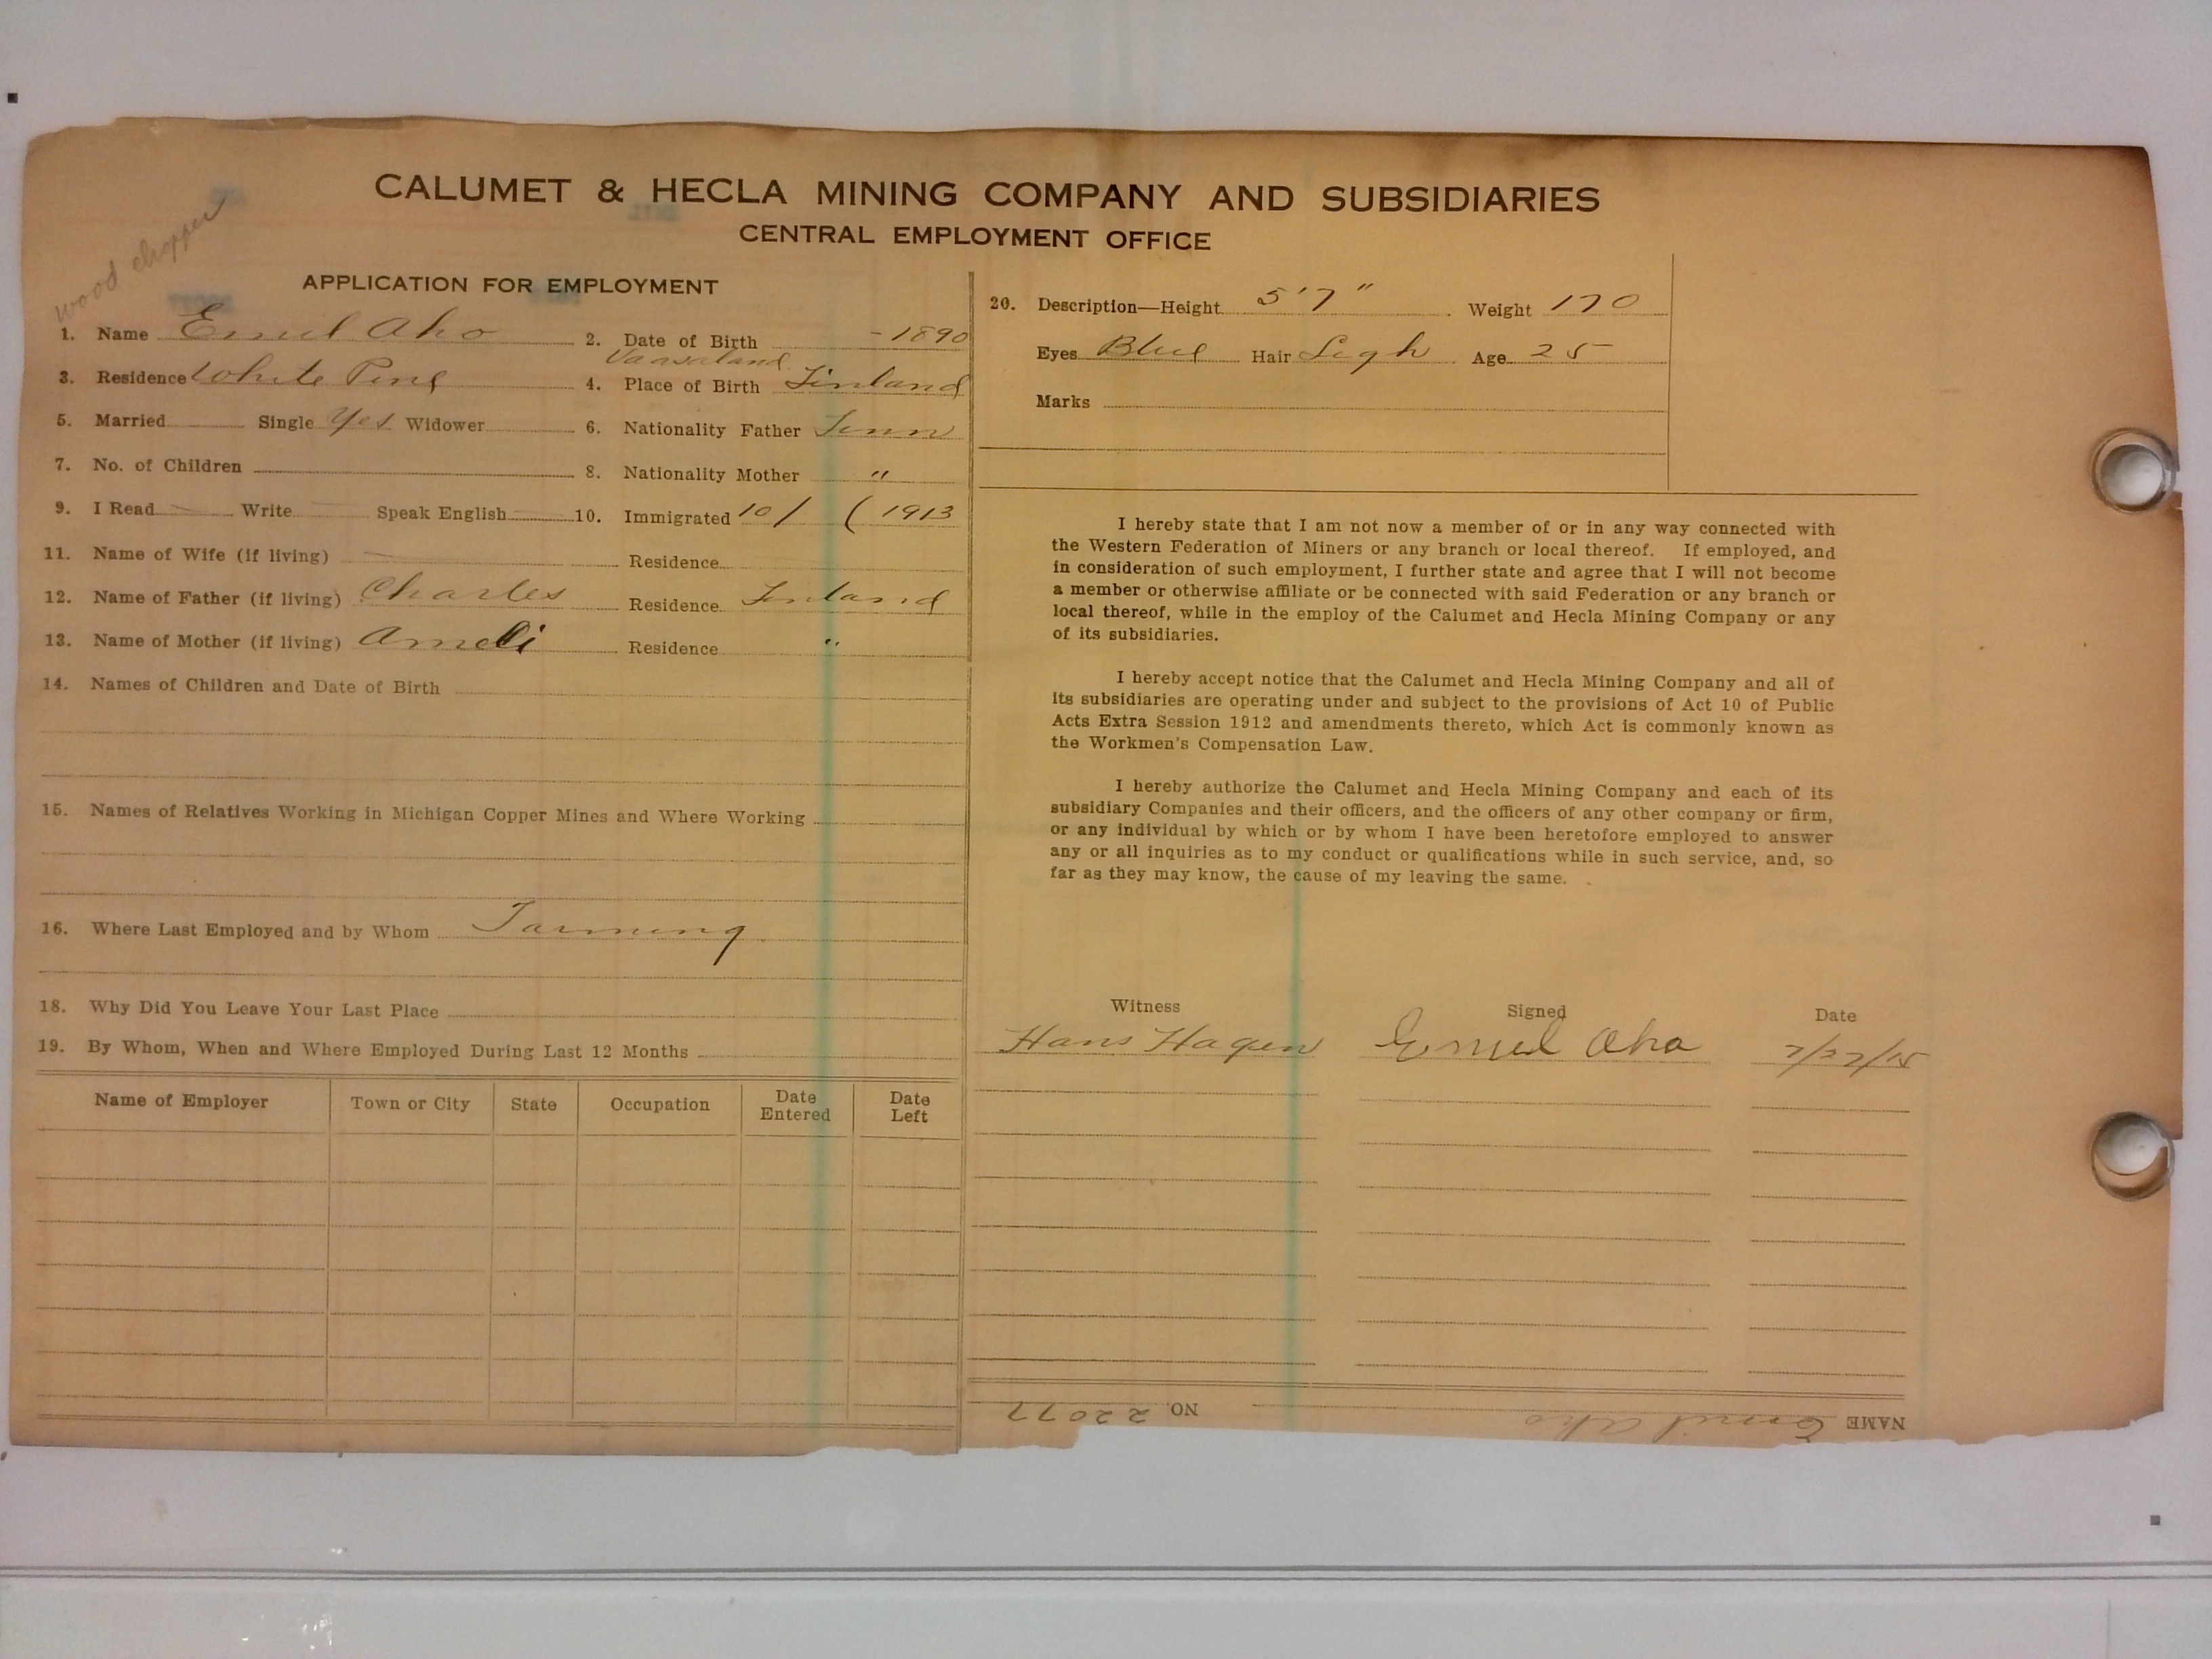 CALUMET & HECLA MINING COMPANY AND SUBSIDIARIES
CENTRAL EMPLOYMENT OFFICE
wood chopper
APPLICATION FOR EMPLOYMENT
1. Name Emil Aho 2. Date of Birth - 1890
Vaasaland
3. Residence White Pine 4. Place of Birth Finland
5. Married Single Yes Widower 6. Nationality Father Finn
7. No. of Children 8. Nationality Mother "
9. I Read Write Speak English 10. Immigrated 10/ ( 1913
11. Name of Wife (if living) Residence
12. Name of Father (if living) Charles Residence Finland
13. Name of Mother (if living) Ameli Residence "
14. Names of Children and Date of Birth
15. Names of Relatives Working in Michigan Copper Mines and Where Working
16. Where Last Employed and by Whom Farming
18. Why Did You Leave Your Last Place
19. By Whom, When and Where Employed During Last 12 Months
Name of Employer Town or City State Occupation Date Entered Date Left
20. Description—Height 5'7" Weight 170
Eyes Blue Hair Ligh Age 25
Marks
I hereby state that I am not now a member of or in any way connected with
the Western Federation of Miners or any branch or local thereof. If employed, and
in consideration of such employment, I further state and agree that I will not become
a member or otherwise affiliate or be connected with said Federation or any branch or
local thereof, while in the employ of the Calumet and Hecla Mining Company or any
of its subsidiaries.
I hereby accept notice that the Calumet and Hecla Mining Company and all of
its subsidiaries are operating under and subject to the provisions of Act 10 of Public
Acts Extra Session 1912 and amendments thereto, which Act is commonly known as
the Workmen's Compensation Law.
I hereby authorize the Calumet and Hecla Mining Company and each of its
subsidiary Companies and their officers, and the officers of any other company or firm,
or any individual by which or by whom I have been heretofore employed to answer
any or all inquiries as to my conduct or qualifications while in such service, and, so
far as they may know, the cause of my leaving the same.
Witness Signed Date
Hans Hagen Emil Aho 7/27/15
NAME Emil Aho NO. 22077